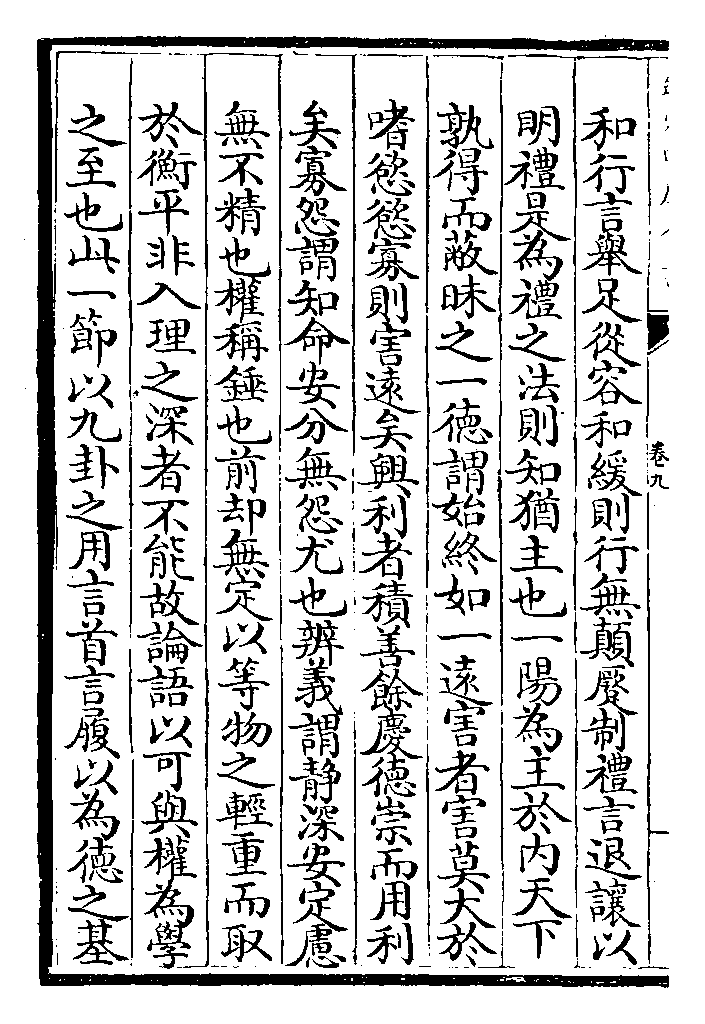 和行言舉足從容和緩則行無顛蹷制禮言退讓以
明禮是為禮之法則知猶主也一陽為主於内天下
孰得而蔽昧之一德謂始終如一遠害者害莫大於
嗜慾慾寡則害遠矣興利者積善餘慶德崇而用利
矣寡怨謂知命安分無怨尤也辨義謂静深安定慮
無不精也權稱錘也前却無定以等物之輕重而取
於衡平非入理之深者不能故論語以可與權為學
之至也此一節以九卦之用言首言履以為德之基
卷九